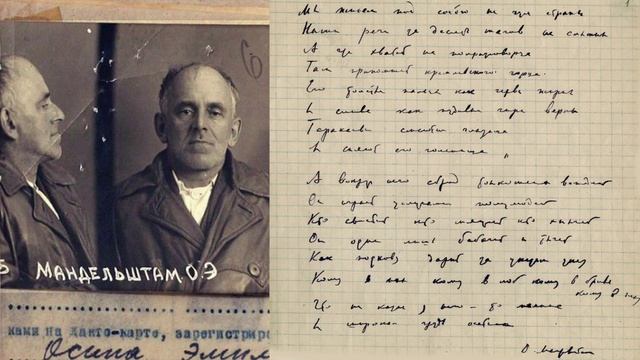 МАНДЕЛЬШТАМ О.Э
ками на дакто-карте, зарегистриро
Осипа Эмил
Мы живем под собою не чуя страны
Наши речи за десять шагов не слышны
А где хватит на полразговорца
Там припомнят кремлевского горца.
Его толстые пальцы как черви жирны
И слова как пудовые гири верны
Тараканьи смеются глазища
И сияют его голенища
А вокруг него сброд тонкошеих вождей
Он играет услугами полулюдей
Кто свистит кто мяучит кто хнычет
Он один лишь бабачит и тычет
Как подкову дарит за указом указ
Кому в пах кому в лоб кому в бровь
кому в глаз
Что ни казнь у него - то малина
И широкая грудь осетина
О. Мандельштам